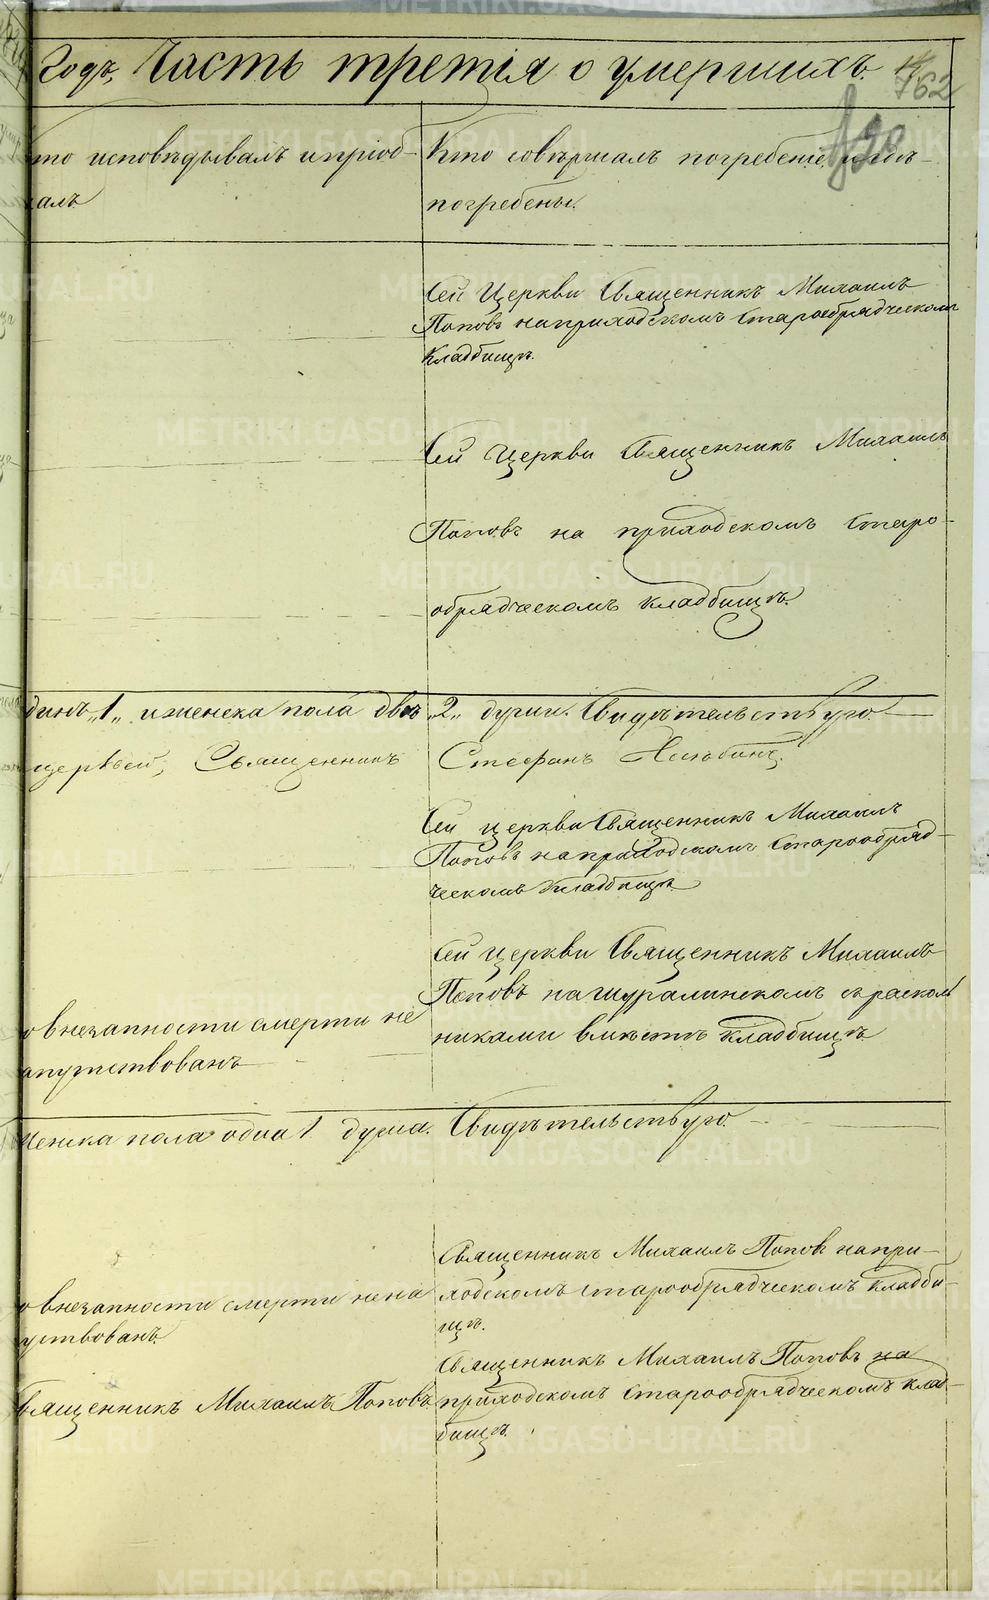 Годъ, Часть третія о умершихъ. 762
то исповѣдывалъ и пріоб-
алъ
Кто совѣршалъ погребеніе, и гдѣ
погребены.
Сей Церкви Священникъ Михаилъ
Поповъ на приходскомъ старообрядческомъ
кладбищѣ.
Сей Церкви Священникъ Михаилъ
Поповъ на приходскомъ старо-
обрядческомъ кладбищѣ.
динъ „1„ и женска пола двѣ „2„ души. Свидѣтельствую.
церквей, Священникъ Стефанъ
Сей церкви Священникъ Михаилъ
Поповъ на приходскомъ старообряд-
ческомъ кладбищѣ
Сей церкви Священникъ Михаилъ
Поповъ на Шуралинскомъ съ раскол
никами вмѣстѣ кладбищѣ
о внезапности смерти не
апутствованъ
Женска пола одна 1 душа. Свидѣтельствую.
Священникъ Михаилъ Поповъ на при-
ходскомъ старообрядческомъ кладби-
щѣ.
о внезапности смерти не на
утствованъ.
Священникъ Михаилъ Поповъ на
приходскомъ старообрядческомъ клад-
бищѣ.
вященникъ Михаилъ Поповъ
METRIKI.GASO-URAL.RU